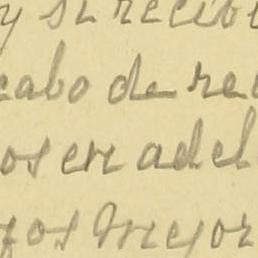 y si recibi
cabo de rec
os en adel
fos mejor